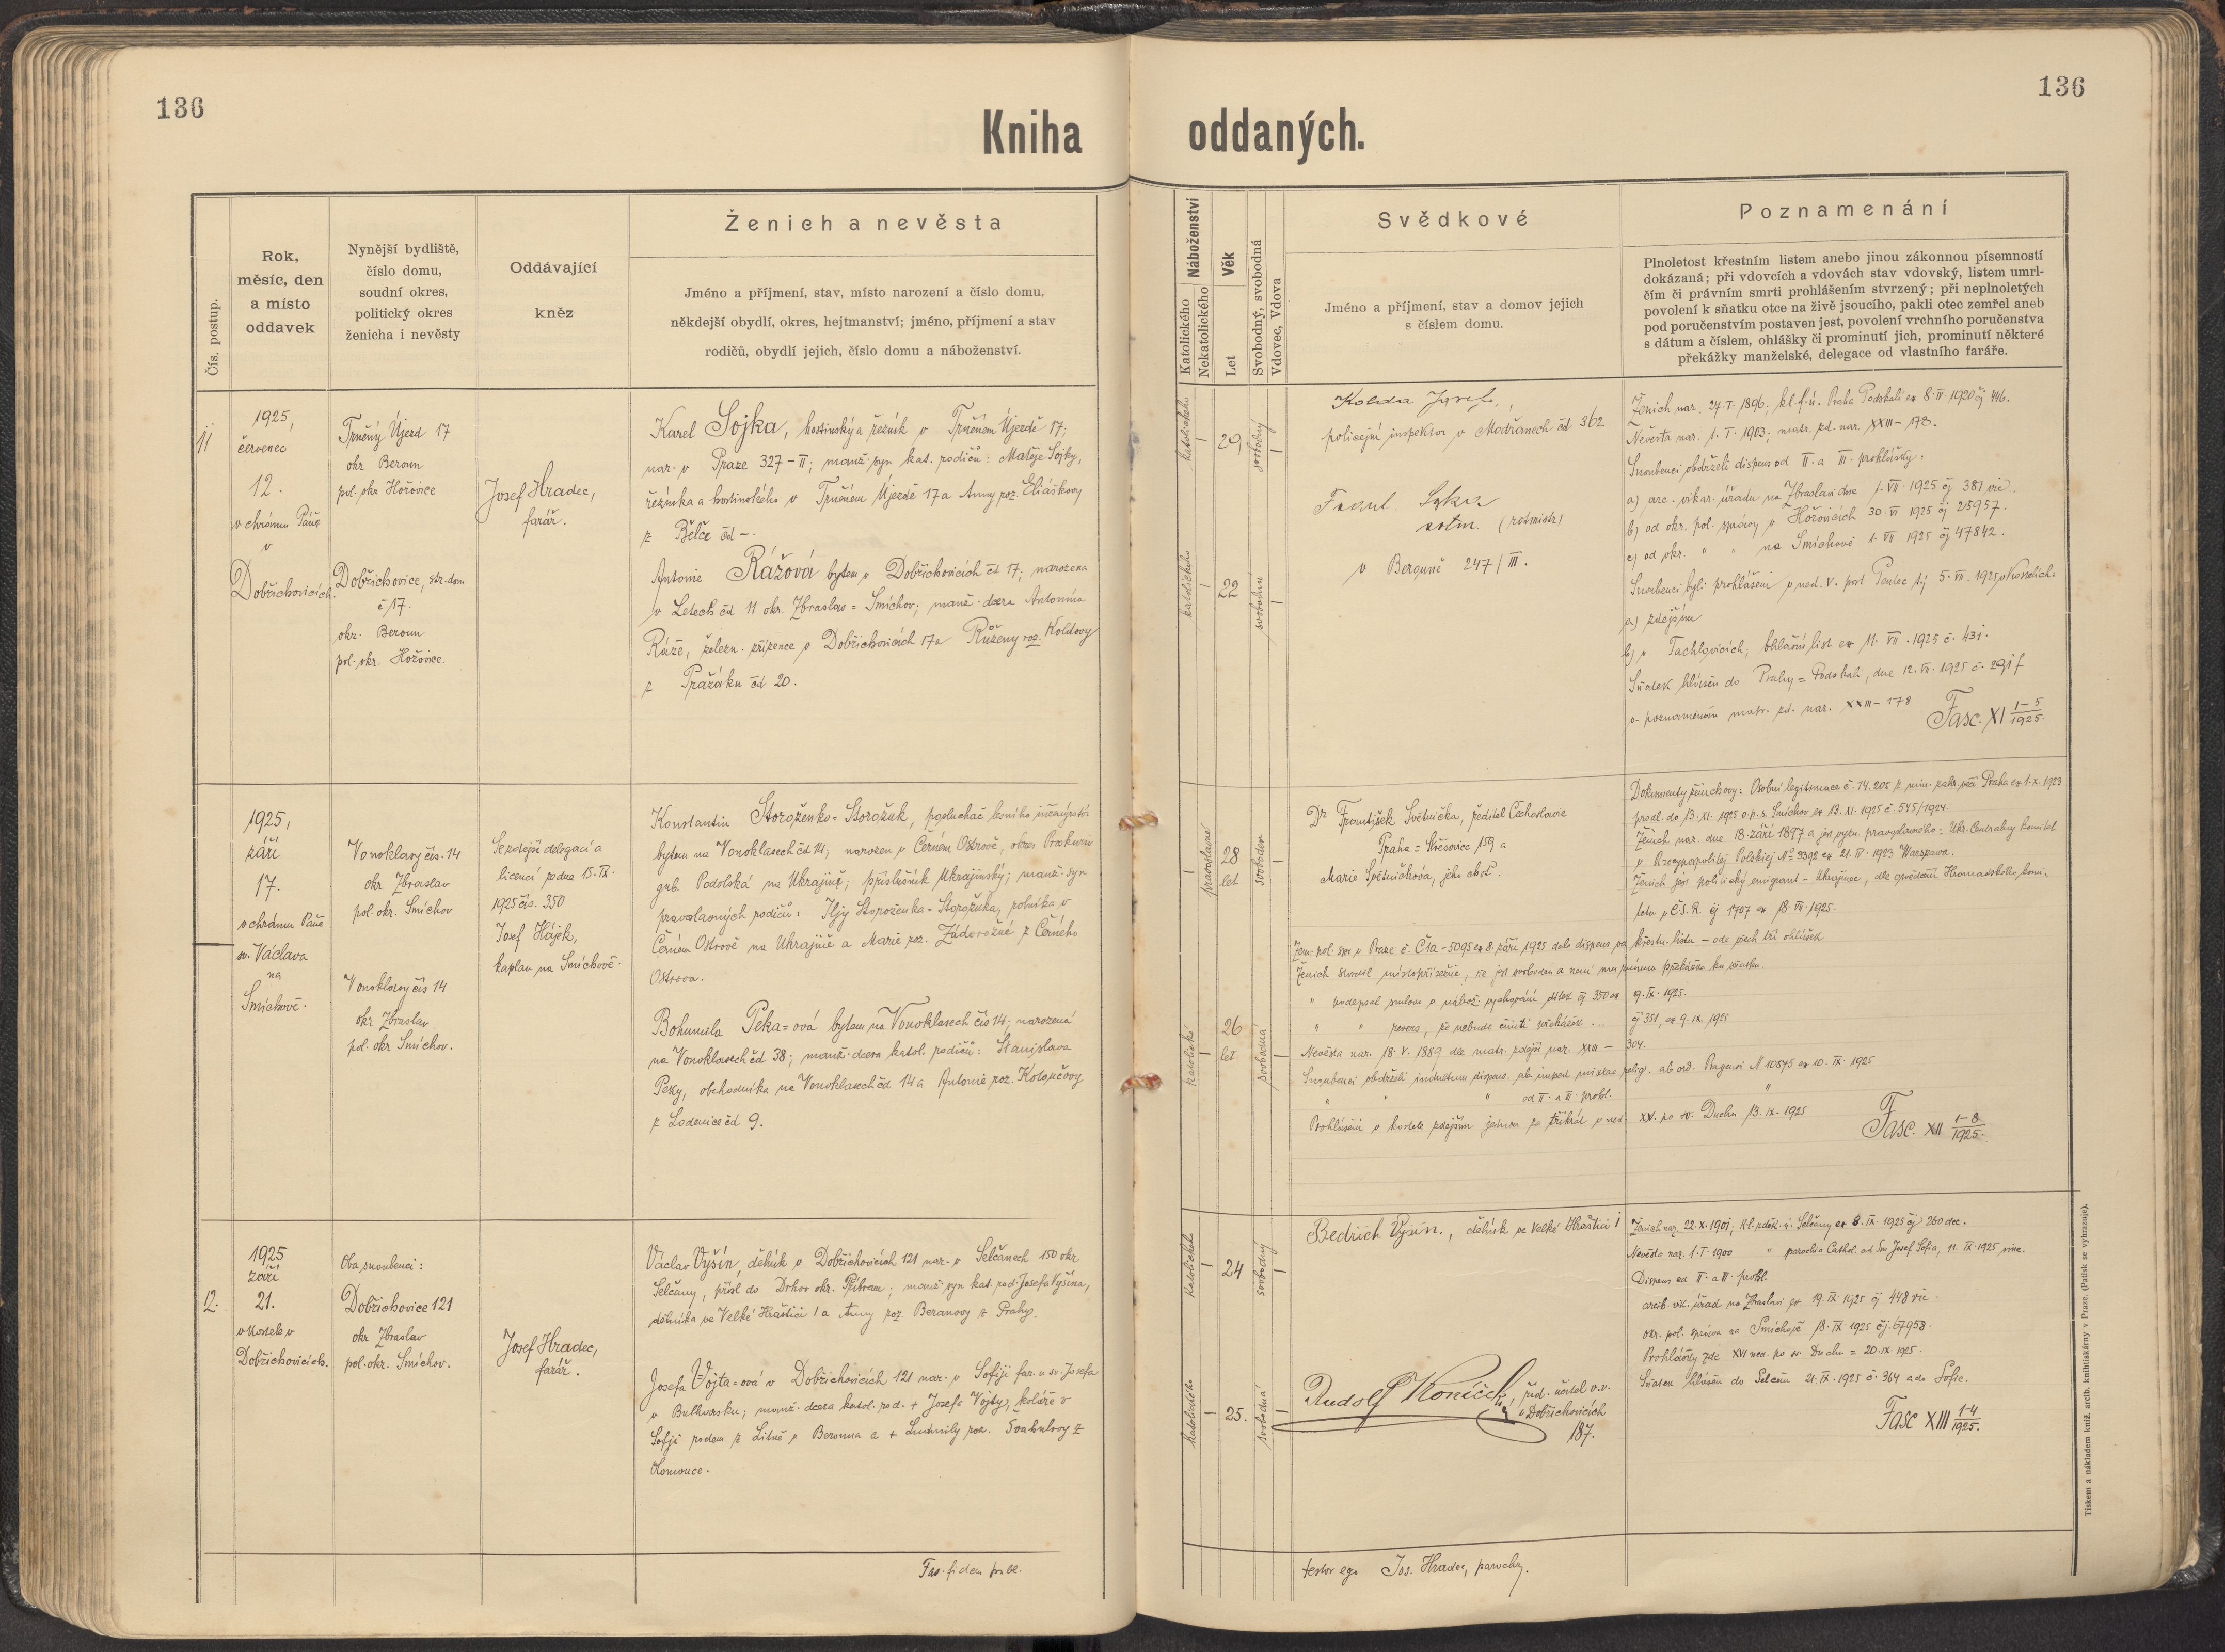 136
136
Kniha oddaných.
Čís. postup.
Rok,
měsíc, den
a místo
oddavek
Nynější bydliště,
číslo domu,
soudní okres,
politický okres
ženicha i nevěsty
Oddávající
kněz
Ženich a nevěsta
Jméno a příjmení, stav, místo narození a číslo domu,
někdejší obydlí, okres, hejtmanství; jméno, příjmení a stav
rodičů, obydlí jejich, číslo domu a náboženství.
Náboženství
Katolického
Nekatolického
Věk
Let
Svobodný, svobodná
Vdovec, Vdova
Svědkové
Jméno a příjmení, stav a domov jejich
s číslem domu.
Poznamenání
Plnoletost křestním listem anebo jinou zákonnou písemností
dokázaná; při vdovcích a vdovách stav vdovský, listem umrl-
čím či právním smrti prohlášením stvrzený; při neplnoletých
povolení k sňatku otce na živě jsoucího, pakli otec zemřel aneb
pod poručenstvím postaven jest, povolení vrchního poručenstva
s dátum a číslem, ohlášky či prominutí jich, prominutí některé
překážky manželské, delegace od vlastního faráře.
11
1925,
červenec
12.
v chrámu Páně
v
Dobřichovicích.
Trněný Újezd 17
okr Beroun
pol. okr Hořovice
Dobřichovice, str. dom
č 17.
okr. Beroun
pol. okr. Hořovice.
Josef Hradec,
farář.
Karel Sojka, hostinský a řezník v Trněném Újezdě 17;
nar. v Praze 327-II; manž. syn kat. rodičů: Matěje Sojky,
řezníka a hostinského v Trněném Újezdě 17 a Anny roz. Eliáškovy
z Bělče čd -.
Antonie Rážová bytem v Dobřichovicích čd 17; narozena
v Letech čd 11 okr. Zbraslav = Smíchov; manž. dcera Antonína
Ráže, železn. zřízence v Dobřichovicích 17 a Růženy roz. Koldovy
z Pražáku čd 20.
katolického
29
svobodný
katolického
22
svobodná
Kolda Josef,
policejní inspektor v Modřanech čd 362
Frant.
(rotmistr)
v Berouně 247/III.
Ženich nar. 27.I.1896, kl. f. ú. Praha Podskalí ex 8.IV 1920 čj 446.
Nevěsta nar. 1.I.1903; matr. zd. nar. XXIII-178.
Snoubenci obdrželi dispens od II. a III. prohlášky.
a) arc. vikar. úřadu na Zbraslavi dne 1.VII.1925 čj 381 vic.
b) od okr. pol. správy v Hořovicích 30.VI 1925 čj 25957.
c) od okr. " " na Smíchově 1.VII 1925 čj 47842.
Snoubenci byli prohlášeni v ned. V. post Pentec tj 5.VII.1925 v kostelích:
a) zdejším
b) v Tachlovicích, ohlašní list ex 11.VII.1925 č. 431.
Sňatek hlášen do Prahy = Podskalí, dne 12.VII.1925 č. 291 f
a poznamenán matr. zd. nar. XXIII-178
Fasc. XI 1-5/1925.
1925,
září
17.
v chrámu Páně
sv. Václava
na
Smíchově.
Vonoklasy čís. 14
okr Zbraslav
pol. okr. Smíchov
Vonoklasy čís 14
okr Zbraslav
pol. okr Smíchov.
Se zdejší delegací a
licencí ze dne 15.IX.
1925 čís. 350
Josef Hájek,
kaplan na Smíchově.
Konstantin Storoženko-Storožuk, posluchač
bytem na Vonoklasech čd 14; narozen v Černém Ostrově, okres Proskuriv
gub. Podolská na Ukrajině; příslušník Ukrajinský; manž. syn
pravoslavných rodičů: Ilji Storoženka-Storožuka, rolníka v
Černém Ostrově na Ukrajině a Marie roz. Zádorožné z Černého
Ostrova.
Bohumila Peka=ová bytem na Vonoklasech čís 14; narozená
na Vonoklasech čd 38; manž. dcera katol. rodičů: Stanislava
Peky, obchodníka na Vonoklasech čd 14 a Antonie roz. Kolenčovy
z Lodenice čd 9.
pravoslavné
28
let
svoboden
katolické
26
let
svobodná
Dr František Světnička, ředitel Čechoslavie
Praha = Střešovice 159 a
Marie Světničková, jeho choť.
Dokumenty ženichovy: Osobní legitimace č. 74.205 z min. zahr. věcí Praha ex 1.X.1923
prodl. do 13.XI.1925 o.p.s. Smíchov ex 13.XI.1925 č. 545/1924.
Ženich nar. dne 18. září 1897 a jest vyzn. pravoslavného: Ukr. Centralny Komitet
v Rzeczypospolitej Polskiej № 3392 ex 21.IV.1923 Warszawa.
Ženich jest politický emigrant - Ukrajinec, dle osvědčení Hromadského komi-
tetu v Č.S.R. čj 1707 ex 18.VII.1925.
Zem. pol. spr. v Praze č. Č1a-5095 ex 8. září 1925 dala dispens za křestní listu - ode všech tří ohlášek
Ženich stvrdil místopřísežně, že jest svoboden a není mu známa překážka ku sňatku.
" podepsal smlouvu o nábož. vychování dítek čj 350 ex 9.IX.1925.
" " revers, že nebude činiti překážek ... čj 351, ex 9.IX.1925
Nevěsta nar. 18.V.1889 dle matr. zdejší nar. XXII - 304.
Snoubenci obdrželi indultum dispens. ab imped. mixtae relig. ab ord. Pragensi N 10875 ex 10.IX.1925
" " " od II. a III. prohl. "
Prohlášeni v kostele zdejším jednou za třikrát v ned. XV. po sv. Duchu 13.IX.1925
Fasc. XII 1-8/1925.
12.
1925
září
21.
v kostele v
Dobřichovicích.
Oba snoubenci:
Dobřichovice 121
okr Zbraslav
pol. okr. Smíchov.
Josef Hradec,
farář.
Václav Vyšín, dělník v Dobřichovicích 121 nar. v Selčanech 150 okr
Selčany, přísl do Drhov okr. Příbram; manž. syn kat. rod. Josefa Vyšína,
dělníka ve Velké Hraštici 1 a Anny roz. Beranovy z Prahy.
Josefa Vojta=ová v Dobřichovicích 121 nar. v Sofiji far. u sv. Josefa
v Bulharsku; manž. dcera katol. rod. + Josefa Vojty, koláře v
Sofiji rodem z Litně v Berouna a + Ludmily roz. z
Olomouce.
katolického
24
svobodný
katolického
25.
svobodná
Bedřich Vyšín, dělník ve Velké Hraštici 1
Rudolf Koníček, říd. učitel v.v.
v Dobřichovicích
187.
Ženich nar. 22.X.1901; kř. l. z děk. ú. Selčany ex 8.IX.1925 čj 260 dec.
Nevěsta nar. 1.I.1900 " parochia Cathol. ad Sm Josef Sofia, 11.IX.1925
Dispens od II. a III. prohl.
arcib. vik. úřad na Zbraslavi ex 19.IX.1925 čj 448 vic.
okr. pol. správa na Smíchově 18.IX.1925 čj. 67958.
Prohlášky zde XVI ned. po sv. Duchu = 20.IX.1925.
Sňatek hlášen do Selčan 21.IX.1925 č. 364 a do Sofie.
Fasc XIII 1-4/1925.
testor ego Jos. Hradec, parochus.
Tiskem a nákladem kníž. arcib. knihtiskárny v Praze. (Patisk se vyhrazuje).